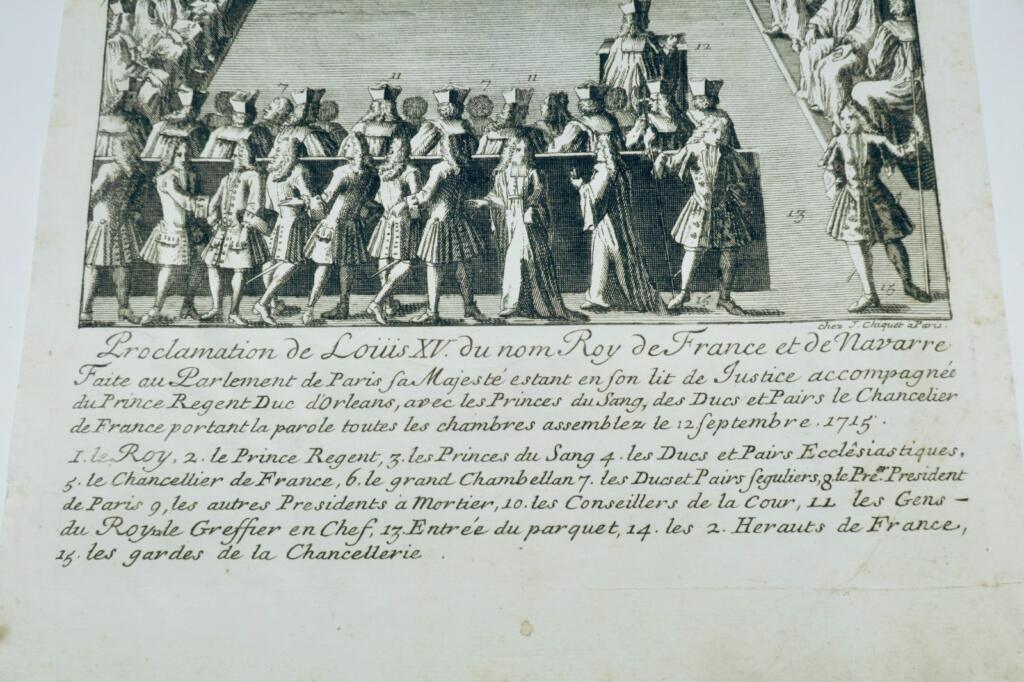 12
7 11 7 11
13
15 15
chez J. Chiquet a Paris.
Proclamation de Loüis XV. du nom Roy de France et de Navarre
Faite au Parlement de Paris sa Majesté estant en son lit de Justice accompagnée
du Prince Regent Duc d'Orleans, avec les Princes du Sang, des Ducs et Pairs le Chancelier
de France portant la parole toutes les chambres assemblez le 12 septembre . 1715.
1. le Roy, 2. le Prince Regent, 3. les Princes du Sang 4. les Ducs et Pairs Ecclêsiastiques,
5. le Chancellier de France, 6. le grand Chambellan 7. les Ducs et Pairs seguliers, 8. le Pre.er President
de Paris 9, les autres Presidents à Mortier, 10. les Conseillers de la Cour, 11 les Gens –
du Roy 12 le Greffier en Chef, 13. Entrée du parquet, 14. les 2. Herauts de France,
15. les gardes de la Chancellerie .